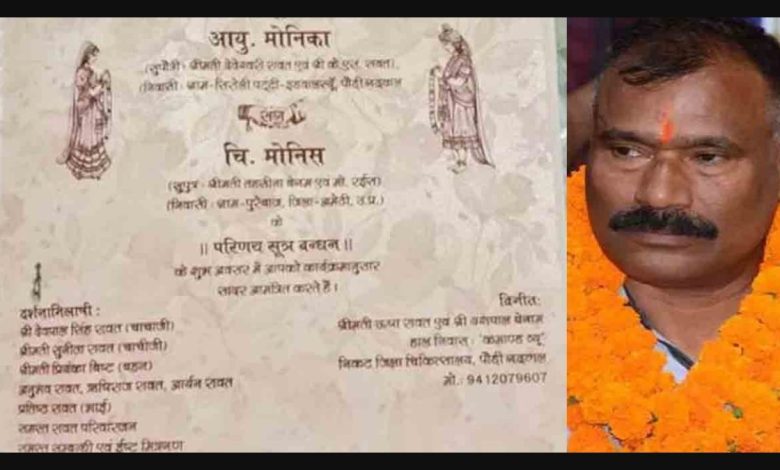 आयु. मोनिका
(सुपौत्री - श्रीमती देवेश्वरी रावत एवं श्री के.एल. रावत),
(निवासी - ग्राम- पट्टी- पौड़ी गढ़वाल
संग
चि. मोनिस
(सुपुत्र - श्रीमती तहसीना बेगम एवं मो. रईस)
(निवासी - ग्राम- जिला-अमेठी, उ.प्र.)
के
॥ परिणय सूत्र बन्धन ॥
के शुभ अवसर में आपको कार्यक्रमानुसार
सादर आमंत्रित करते हैं।
दर्शनाभिलाषी:
श्री देवपाल सिंह रावत (चाचाजी)
श्रीमती सुनीता रावत (चाचीजी)
श्रीमती प्रियंका बिष्ट (बहन)
अनुभव रावत, ऋषिराज रावत, आर्यन रावत
प्रतिष्ठ रावत (भाई)
समस्त रावत परिवारजन
समस्त सम्बन्धी एवं ईष्ट मित्रगण
विनीत:
श्रीमती ऊषा रावत एवं श्री यशपाल बेनाम
हाल निवास - 'कमाण्ड व्यू'
निकट जिला चिकित्सालय, पौड़ी गढ़वाल
मो.: 9412079607